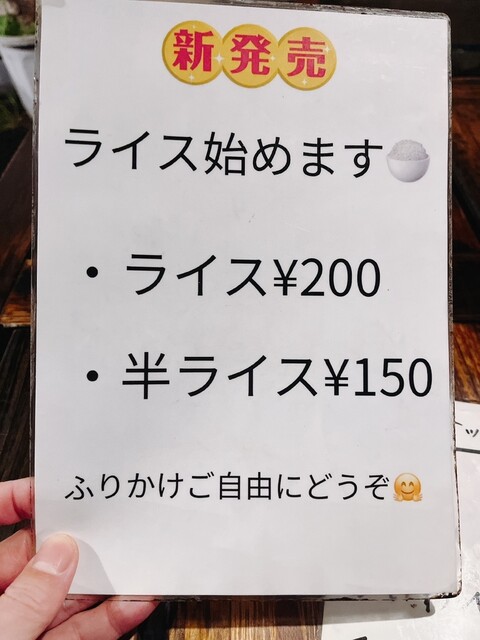 新発売
ライス始めます🍚
・ライス¥200
・半ライス¥150
ふりかけご自由にどうぞ🤗